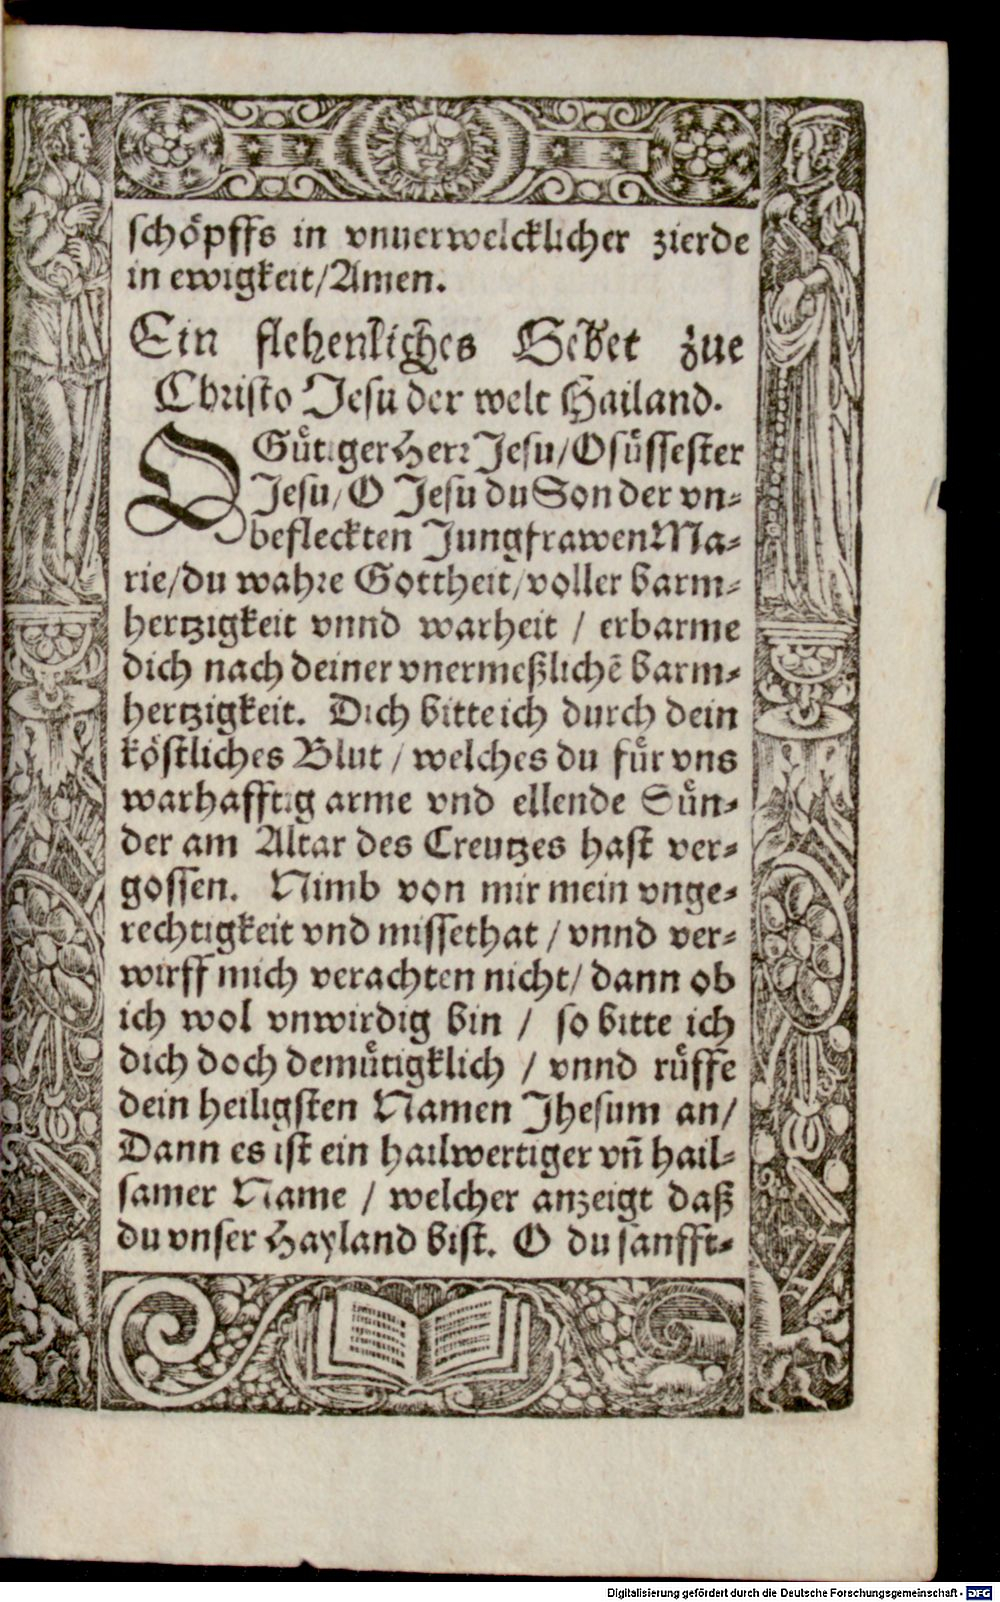 schöpffs in vnuerwelcklicher zierde
in ewigkeit/Amen.
Ein flehenliches Gebet zue
Christo Jesu der welt Hailand.
O Gütiger Herr Jesu/O süssester
Jesu/O Jesu du Son der vn-
befleckten Jungfrawen Ma-
rie/du wahre Gottheit/voller barm-
hertzigkeit vnnd warheit / erbarme
dich nach deiner vnermeßlichẽ barm-
hertzigkeit. Dich bitte ich durch dein
köstliches Blut / welches du für vns
warhafftig arme vnd ellende Sün-
der am Altar des Creutzes hast ver-
gossen. Nimb von mir mein vnge-
rechtigkeit vnd missethat / vnnd ver-
wirff mich verachten nicht/ dann ob
ich wol vnwirdig bin / so bitte ich
dich doch demütigklich / vnnd rüffe
dein heiligsten Namen Jhesum an/
Dann es ist ein hailwertiger vñ hail-
samer Name / welcher anzeigt daß
du vnser Hayland bist. O du sanfft-
Digitalisierung gefördert durch die Deutsche Forschungsgemeinschaft - DFG